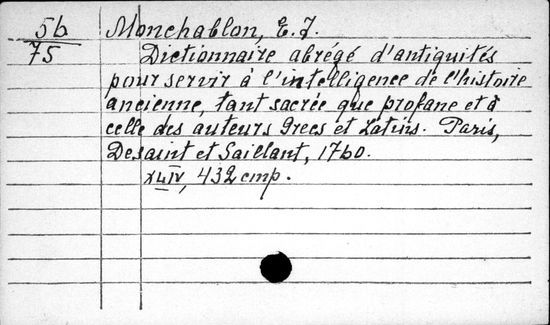 56 Monchablon, E. J.
75 Dictionnaire abrégé d'antiquités
pour servir à l'intelligence de l'histoire
ancienne, tant sacrée que profane et à
celle des auteurs Grecs et Latins. Paris,
Desaint et Saillant, 1760.
XLIV, 432 cmp.